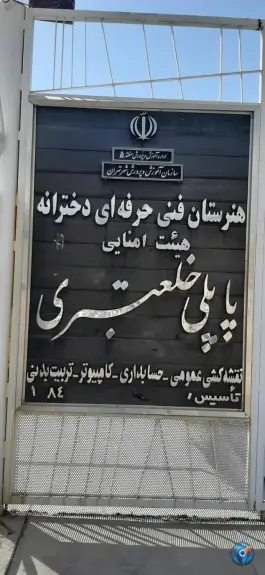 اداره آموزش و پرورش منطقه ۵
سازمان آموزش و پرورش شهر تهران
هنرستان فنی حرفه ای دخترانه
هیئت امنایی
پاپلی خلعتبری
نقشه کشی عمومی - حسابداری - کامپیوتر - تربیت بدنی
تأسیس ،
۱ ۸۴